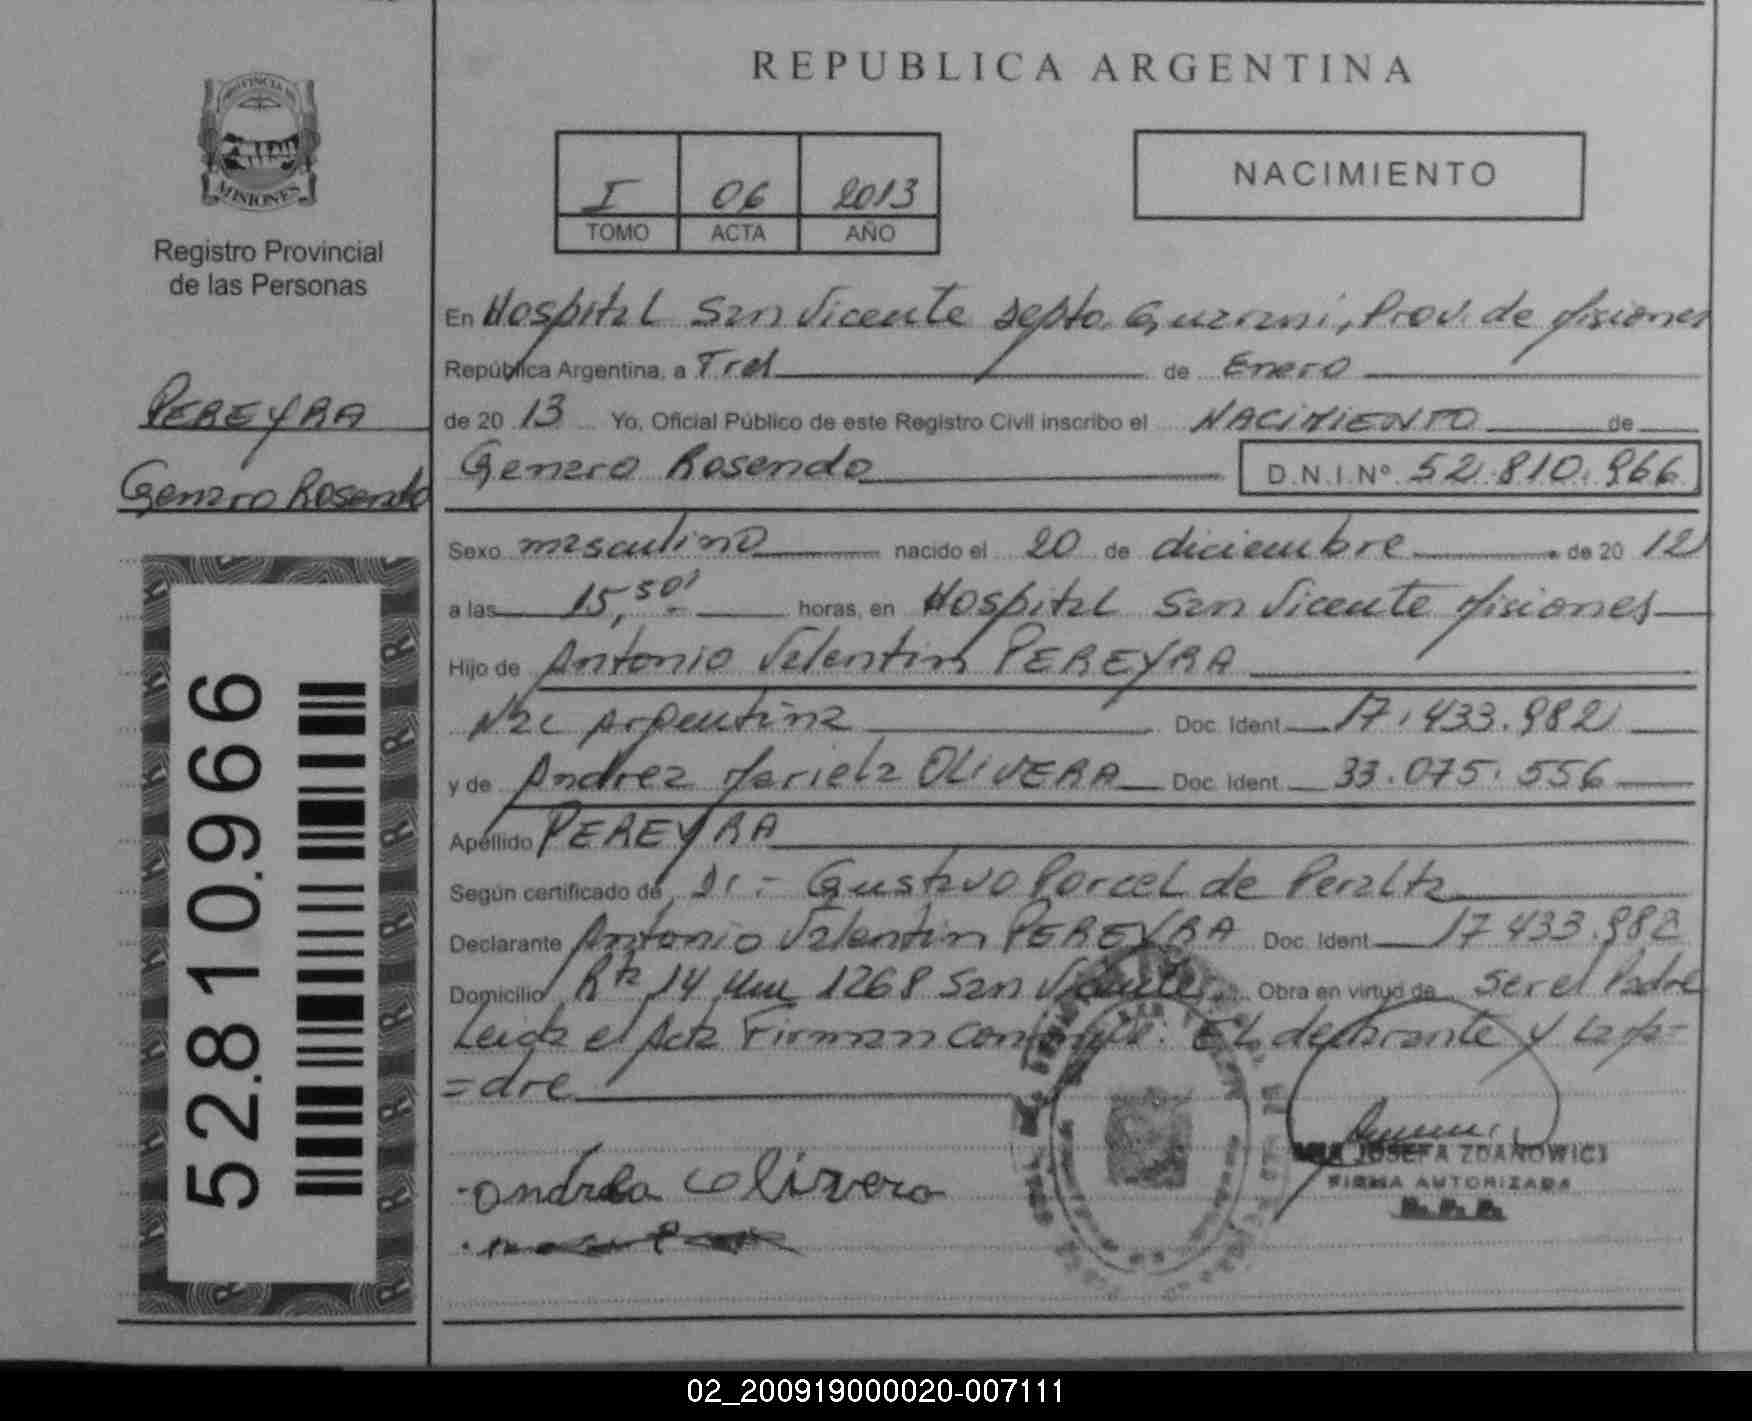 PROVINCIA DE
MISIONES
Registro Provincial
de las Personas
PEREYRA
Genaro Rosendo
52.810.966
REPUBLICA ARGENTINA
I 06 2013
TOMO ACTA AÑO
NACIMIENTO
En Hospital San Vicente Depto. Guarani, Prov. de Misiones
República Argentina, a Tres de Enero
de 20 13 Yo, Oficial Público de este Registro Civil inscribo el NACIMIENTO de
Genaro Rosendo D.N.I.Nº. 52.810.966
Sexo masculino nacido el 20 de diciembre de 20 12
a las 15,50' horas, en Hospital San Vicente Misiones
Hijo de Antonio Valentin PEREYRA
Nac Argentina Doc. Ident. 17.433.982
y de Andrea Mariela OLIVERA Doc. Ident. 33.075.556
Apellido PEREYRA
Según certificado de Dr.- Gustavo Porcel de Peralta
Declarante Antonio Valentin PEREYRA Doc. Ident. 17 433.982
Domicilio Rta 14 Km 1268 San Vicente. Obra en virtud de ser el Padre
Leida el Acta Firman conmigo: El declarante y la ma=
=dre
andrea olivera
JOSEFA ZDANOWICZ
FIRMA AUTORIZADA
R. P. P.
02_200919000020-007111